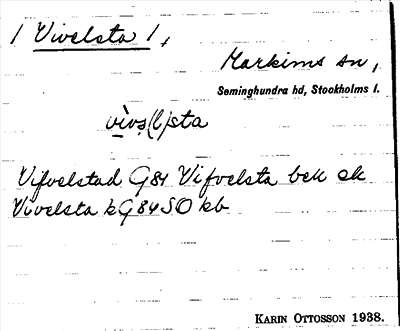 / Vivelsta /,
Markims sn,
Seminghundra hd, Stockholms l.
vì̯vs̩(l)sta
Vifvelstad G84 Vifvelsta bek ek
Vivelsta kG84SO kb
KARIN OTTOSSON 1938.